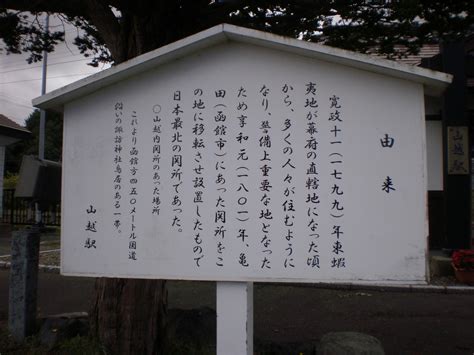 由来
寛政十一(一七九九)年東蝦
夷地が幕府の直轄地になった頃
から、多くの人々が住むように
なり、警備上重要な地となった
ため享和元(一八〇一)年、亀
田(函館市)にあった関所をこ
の地に移転させ設置したもので
日本最北の関所であった。
〇山越内関所のあった場所
これより函館方450メートル国道
沿いの諏訪神社鳥居のある一帯。
山越駅
山越駅